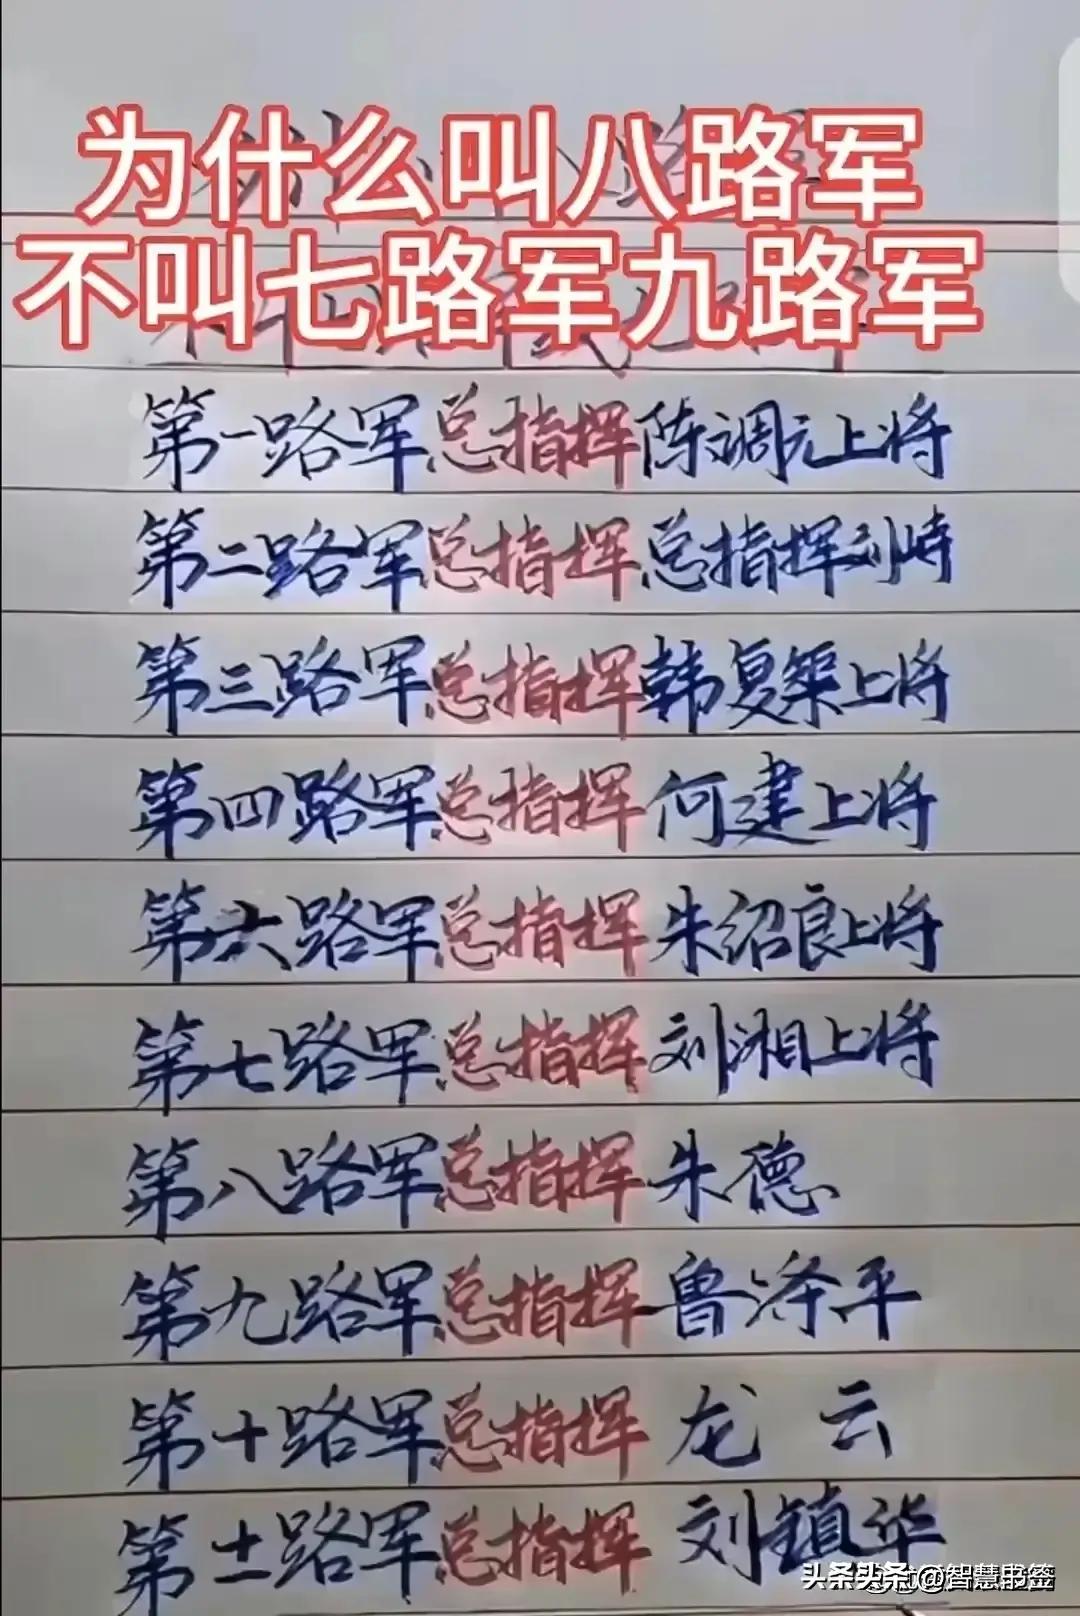 为什么叫八路军
不叫七路军九路军
第一路军总指挥陈调元上将
第二路军总指挥总指挥刘峙
第三路军总指挥韩复榘上将
第四路军总指挥何建上将
第六路军总指挥朱绍良上将
第七路军总指挥刘湘上将
第八路军总指挥朱德
第九路军总指挥鲁涤平
第十路军总指挥龙云
第十一路军总指挥刘镇华
头条头条 @智慧书签